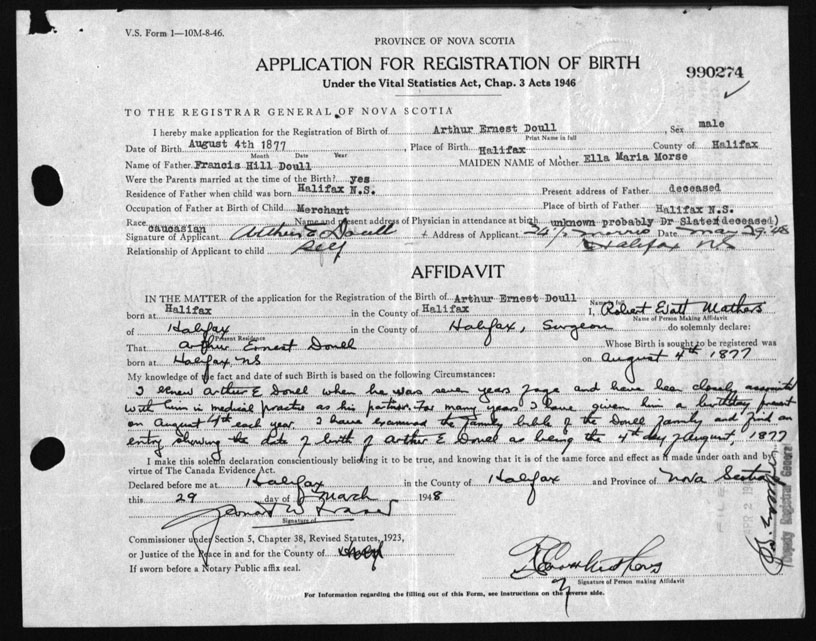 V.S. Form 1—10M-8-46.
PROVINCE OF NOVA SCOTIA
APPLICATION FOR REGISTRATION OF BIRTH
990274
Under the Vital Statistics Act, Chap. 3 Acts 1946
TO THE REGISTRAR GENERAL OF NOVA SCOTIA
I hereby make application for the Registration of Birth of Arthur Ernest Doull Sex male
Print Name in full
Date of Birth August 4th 1877, Place of Birth Halifax County of Halifax
Month Date Year
Name of Father Francis Hill Doull MAIDEN NAME of Mother Ella Maria Morse
Were the Parents married at the time of the Birth? yes
Residence of Father when child was born Halifax N.S. Present address of Father deceased
Occupation of Father at Birth of Child Merchant Place of birth of Father Halifax N.S.
Race caucasian Name and present address of Physician in attendance at birth unknown probably Dr Slater (deceased)
Signature of Applicant Arthur E Doull Address of Applicant Morris Date 29.48
Relationship of Applicant to child self Halifax NS
AFFIDAVIT
IN THE MATTER of the application for the Registration of the Birth of Arthur Ernest Doull
Name in full
born at Halifax in the County of Halifax I, Robert Evatt Mathers
Name of Person Making Affidavit
of Halifax in the County of Halifax, Surgeon do solemnly declare:
Present Residence
That Arthur Ernest Doull Whose Birth is sought to be registered was
born at Halifax NS on August 4th 1877
My knowledge of the fact and date of such Birth is based on the following Circumstances:
I knew Arthur E Doull when he was seven years of age and have been closely associated
with him in medical practice as his partner. For many years I have given him a birthday present
on August 4th each year. I have examined the family bible of the Doull family and find an
entry showing the date of birth of Arthur E. Doull as being the 4th day of August, 1877
I make this solemn declaration conscientiously believing it to be true, and knowing that it is of the same force and effect as if made under oath and by
virtue of The Canada Evidence Act.
Declared before me at Halifax in the County of Halifax and Province of Nova Scotia
this 29 day of March 1948
Signature of
Commissioner under Section 5, Chapter 38, Revised Statutes, 1923,
or Justice of the Peace in and for the County of
If sworn before a Notary Public affix seal.
Signature of Person making Affidavit
For Information regarding the filling out of this Form, see instructions on the reverse side.
Deputy Registrar General